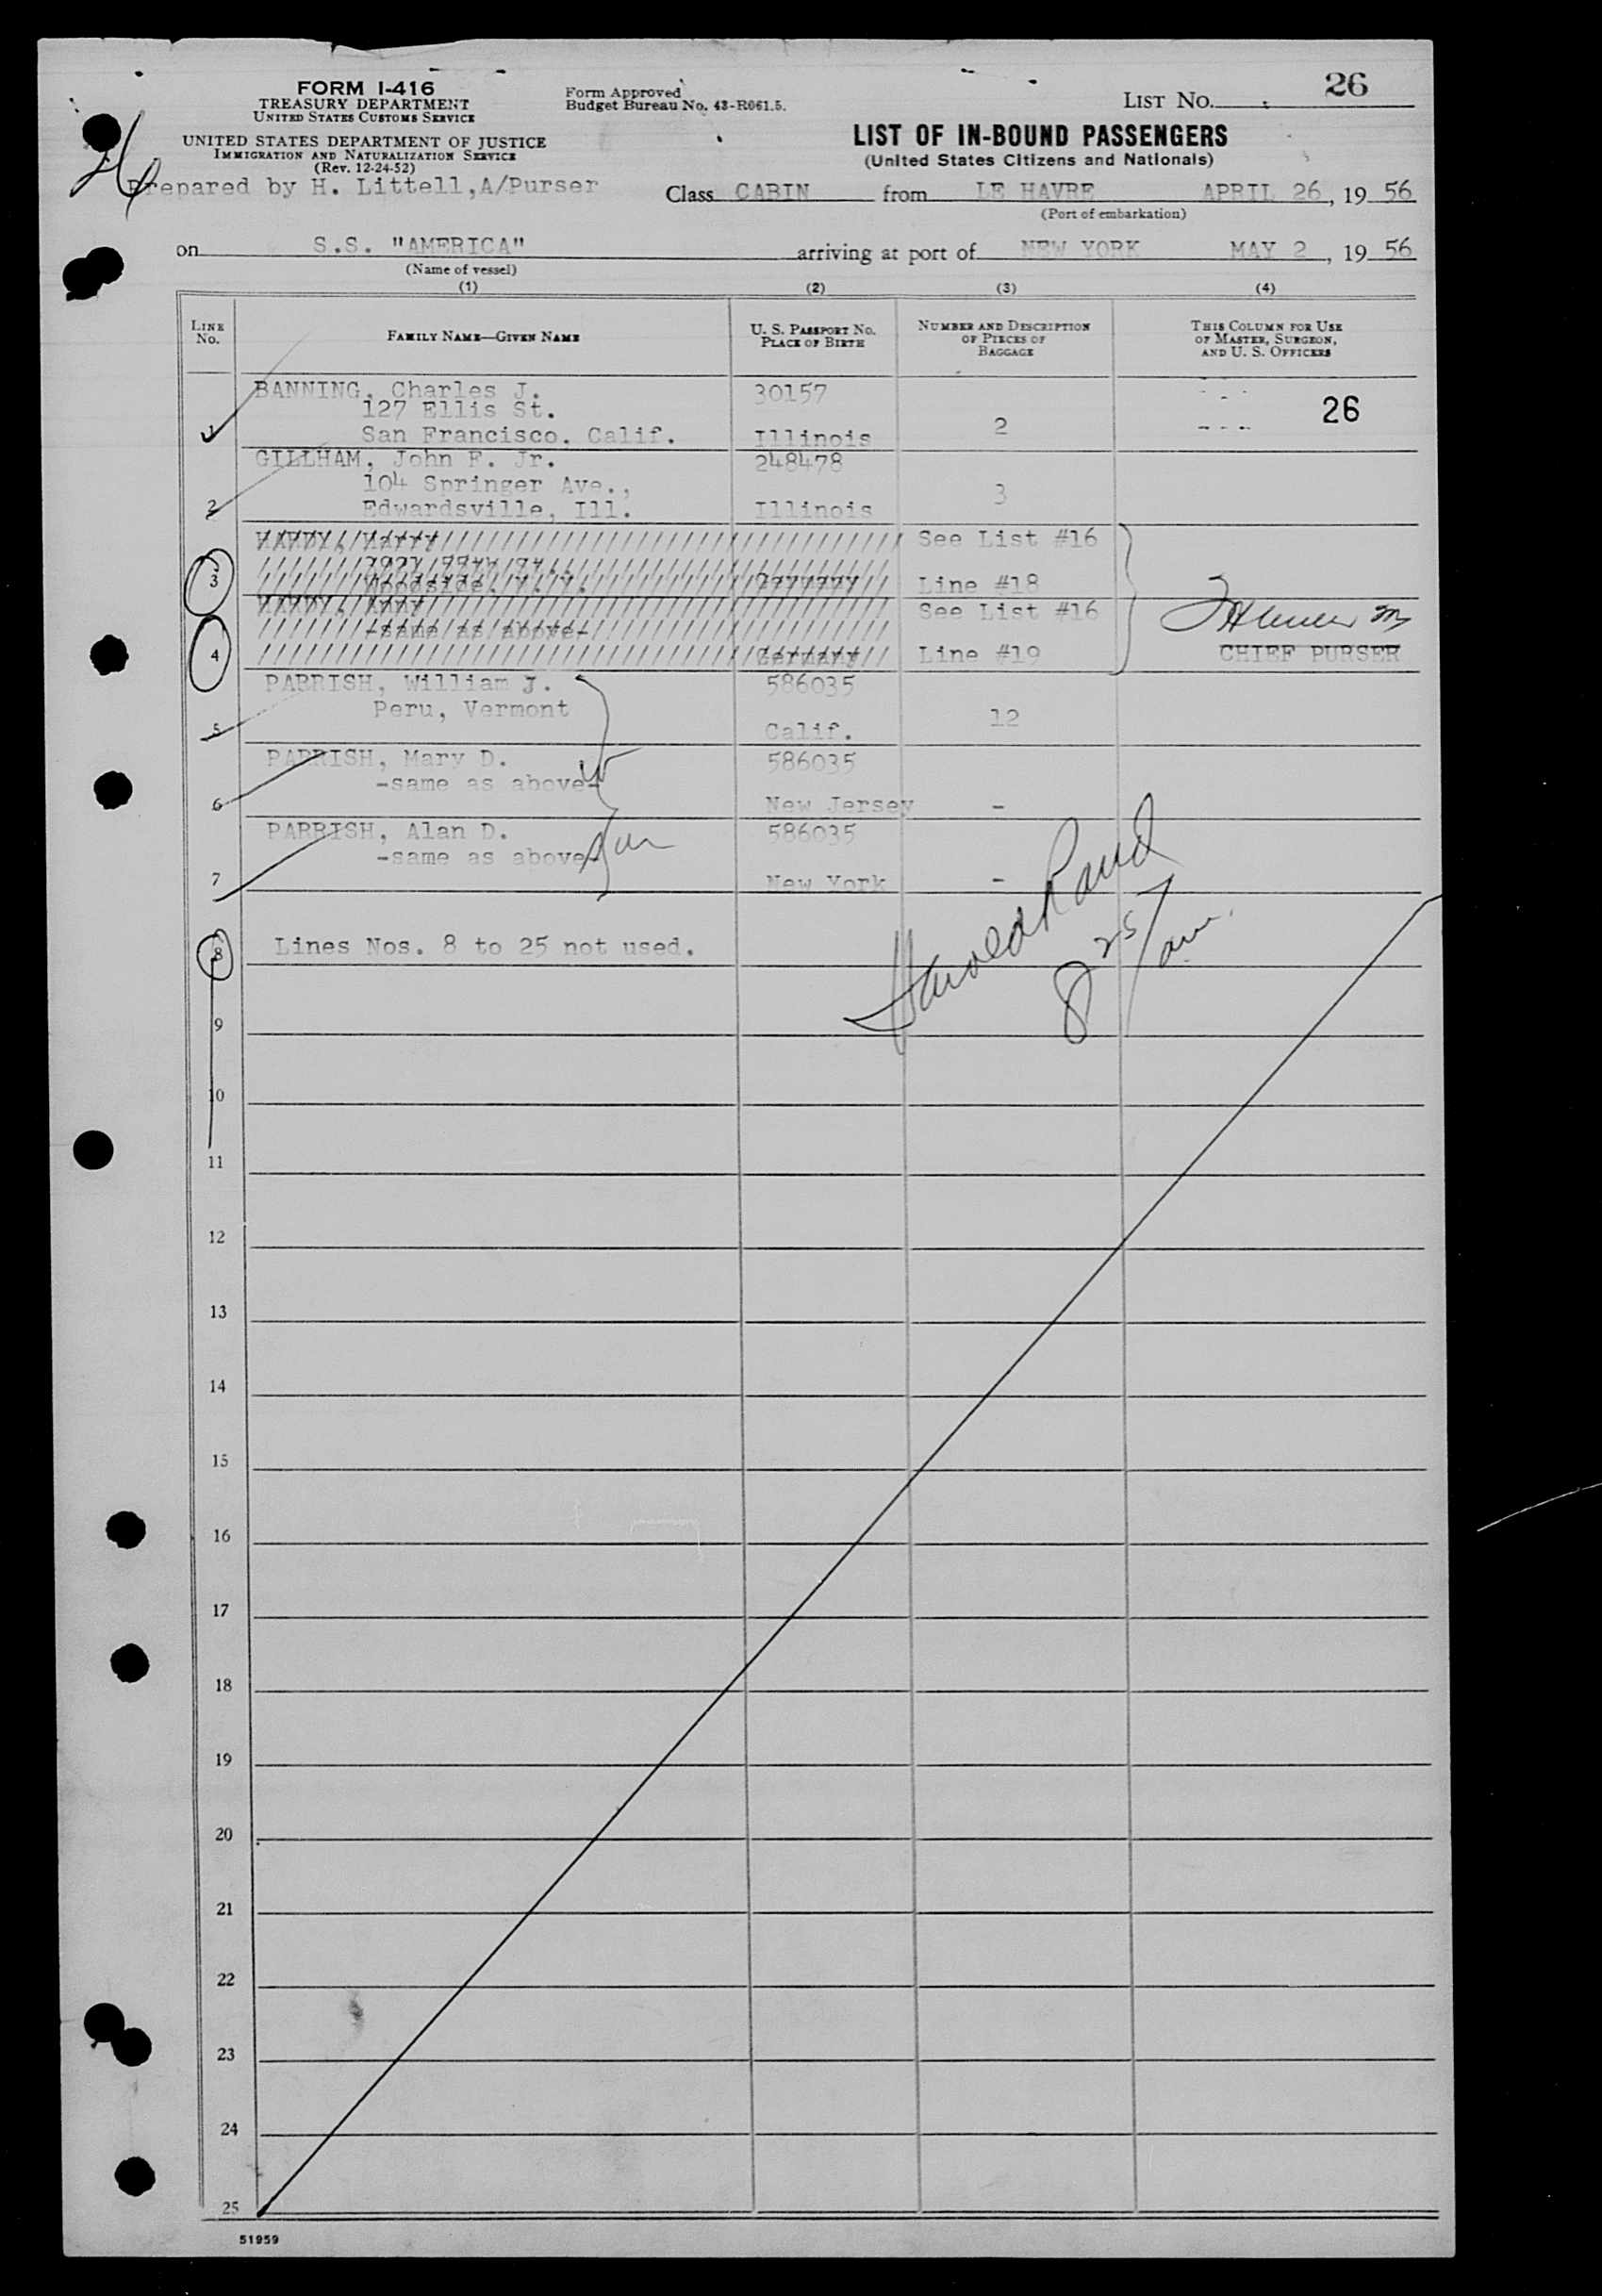 26
FORM I-416
TREASURY DEPARTMENT
UNITED STATES CUSTOMS SERVICE
Form Approved
Budget Bureau No. 43-R061.5.
LIST NO. 26
UNITED STATES DEPARTMENT OF JUSTICE
IMMIGRATION AND NATURALIZATION SERVICE
(Rev. 12-24-52)
LIST OF IN-BOUND PASSENGERS
(United States Citizens and Nationals)
Prepared by H. Littell, A/Purser
Class CABIN from LE HAVRE APRIL 26, 19 56
(Port of embarkation)
on S.S. "AMERICA" arriving at port of NEW YORK MAY 2, 19 56
(Name of vessel)
(1) (2) (3) (4)
LINE No. FAMILY NAME—GIVEN NAME U. S. PASSPORT NO. PLACE OF BIRTH NUMBER AND DESCRIPTION OF PIECES OF BAGGAGE THIS COLUMN FOR USE OF MASTER, SURGEON, AND U. S. OFFICERS
BANNING, Charles J. 30157
127 Ellis St. 26
1 San Francisco, Calif. Illinois 2
GILLHAM, John F. Jr. 248478
104 Springer Ave., 3
2 Edwardsville, Ill. Illinois
HARDY, Harry See List #16
3 Woodside, N.Y. Germany Line #18
HARDY, Anny See List #16
-same as above-
4 Germany Line #19 CHIEF PURSER
PARRISH, William J. 586035
Peru, Vermont 12
5 Calif.
PARRISH, Mary D. 586035
-same as above-
6 New Jersey -
PARRISH, Alan D. 586035
-same as above-
7 New York -
Harold Rand
8 25/am.
8 Lines Nos. 8 to 25 not used.
9
10
11
12
13
14
15
16
17
18
19
20
21
22
23
24
25
51959